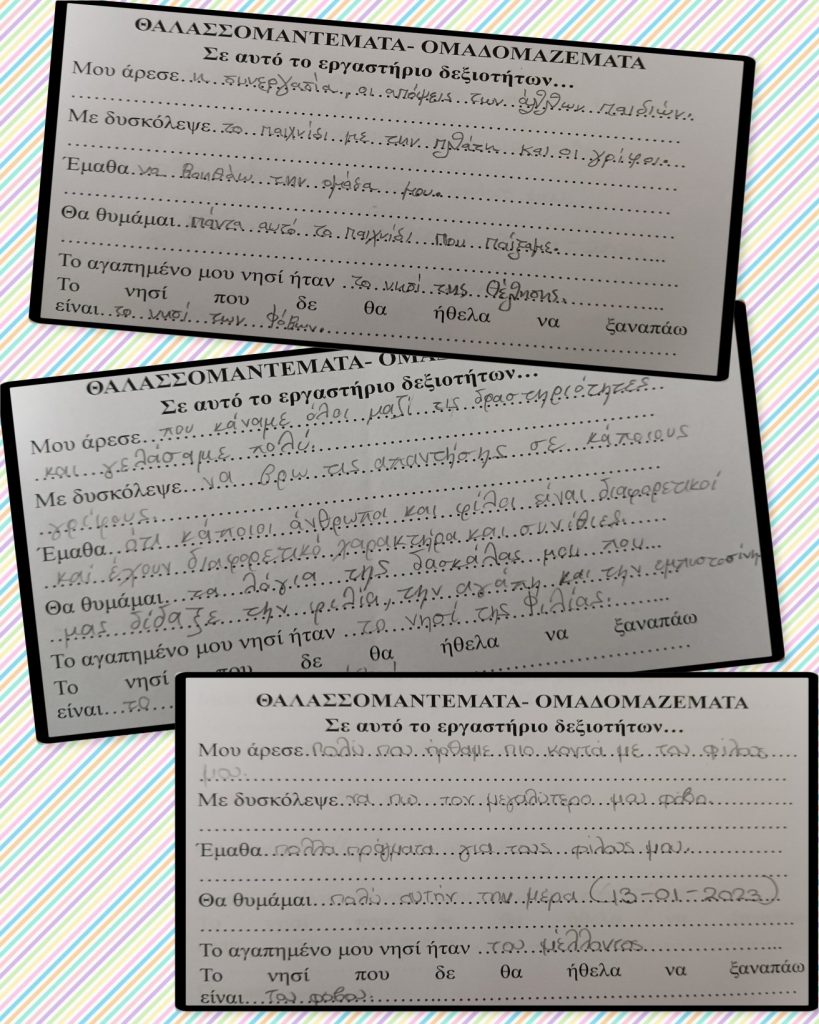 ΘΑΛΑΣΣΟΜΑΝΤΕΜΑΤΑ- ΟΜΑΔΟΜΑΖΕΜΑΤΑ
Σε αυτό το εργαστήριο δεξιοτήτων…
Μου άρεσε η συνεργασία, οι απόψεις των άλλων παιδιών.
Με δυσκόλεψε το παιχνίδι με την πλάτη και οι γρίφοι.
Έμαθα να βοηθάω την ομάδα μου.
Θα θυμάμαι πάντα αυτό το παιχνίδι που παίξαμε.
Το αγαπημένο μου νησί ήταν το νησί της θέλησης.
Το νησί που δε θα ήθελα να ξαναπάω
είναι το νησί των φόβων.
ΘΑΛΑΣΣΟΜΑΝΤΕΜΑΤΑ- ΟΜΑ
Σε αυτό το εργαστήριο δεξιοτήτων…
Μου άρεσε που κάναμε όλοι μαζί τις δραστηριότητες
και γελάσαμε πολύ.
Με δυσκόλεψε να βρω τις απαντήσης σε κάποιους
γρίφους.
Έμαθα ότι κάποιοι άνθρωποι και φίλοι είναι διαφορετικοί
και έχουν διαφορετικό χαρακτήρα και συνίθιες.
Θα θυμάμαι τα λόγια της δασκάλας μου που
μας δίδαξε την φιλία, την αγάπη και την εμπιστοσίνη
Το αγαπημένο μου νησί ήταν το νησί της Φιλίας.
Το νησί που δε θα ήθελα να ξαναπάω
είναι το
ΘΑΛΑΣΣΟΜΑΝΤΕΜΑΤΑ- ΟΜΑΔΟΜΑΖΕΜΑΤΑ
Σε αυτό το εργαστήριο δεξιοτήτων…
Μου άρεσε πολύ που ήρθαμε πιο κοντά με του φίλους
μου.
Με δυσκόλεψε να πιο τον μεγαλύτερο μου φόβο.
Έμαθα πολλα πράγματα για τους φίλους μου.
Θα θυμάμαι πολύ αυτήν την μέρα (13-01-2023)
Το αγαπημένο μου νησί ήταν του μέλλοντος
Το νησί που δε θα ήθελα να ξαναπάω
είναι του φόβου.